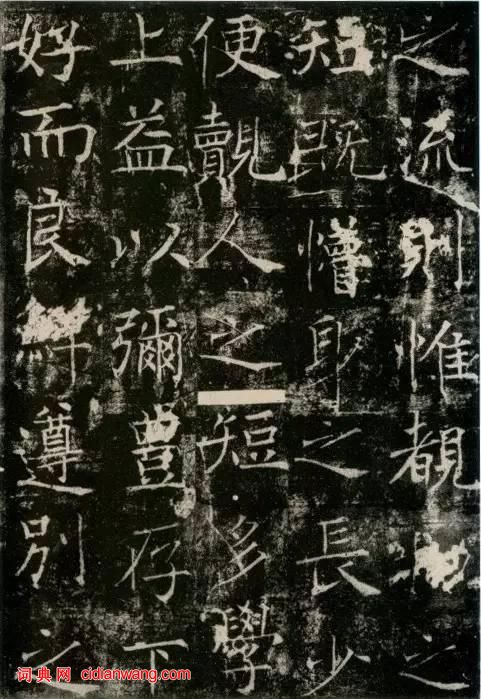 之流則惟覩他之
短既懵身之長少
便覿人之短多學
上益以彌豊存下
好而良遵別之
词典网 cidianwang.com